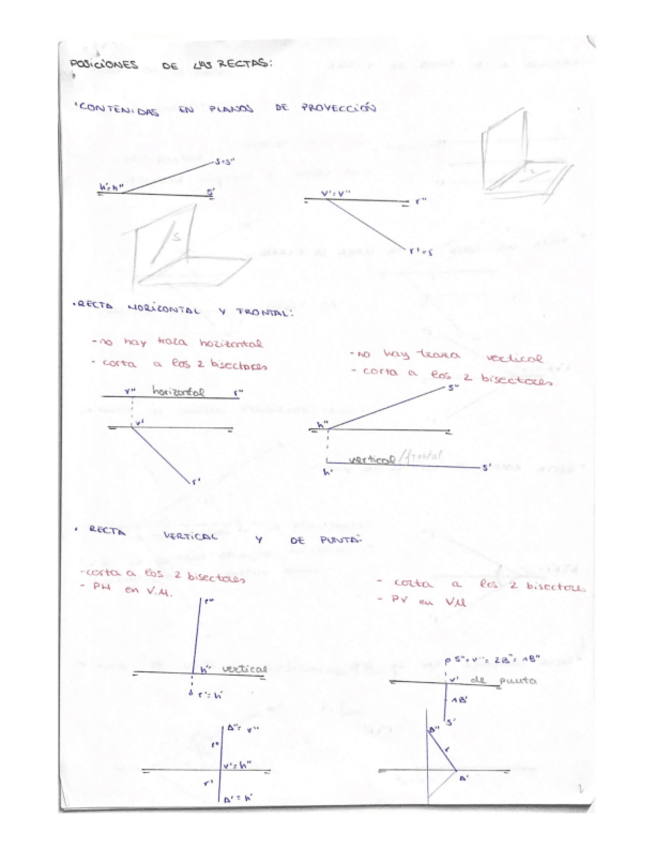 POSICIONES DE LAS RECTAS:
·CONTENIDAS EN PLANOS DE PROYECCIÓN
s=s"
h'=h"
s'
v'=v"
r"
r'=r
S
·RECTA HORIZONTAL Y FRONTAL:
-no hay traza horizontal
- corta a los 2 bisectores
-no hay traza vertical
- corta a los 2 bisectores
v" horizontal r"
v'
r'
s"
h"
vertical/frontal
h'
s'
· RECTA VERTICAL Y DE PUNTA:
-corta a los 2 bisectores
- PH en V.M.
- corta a los 2 bisectores
- PV en VM
r"
h" vertical
r'=h'
v' de punta
1B'
s'
A"=v"
r"
v'=h"
r'
A'=h'
A"
r
A'
2